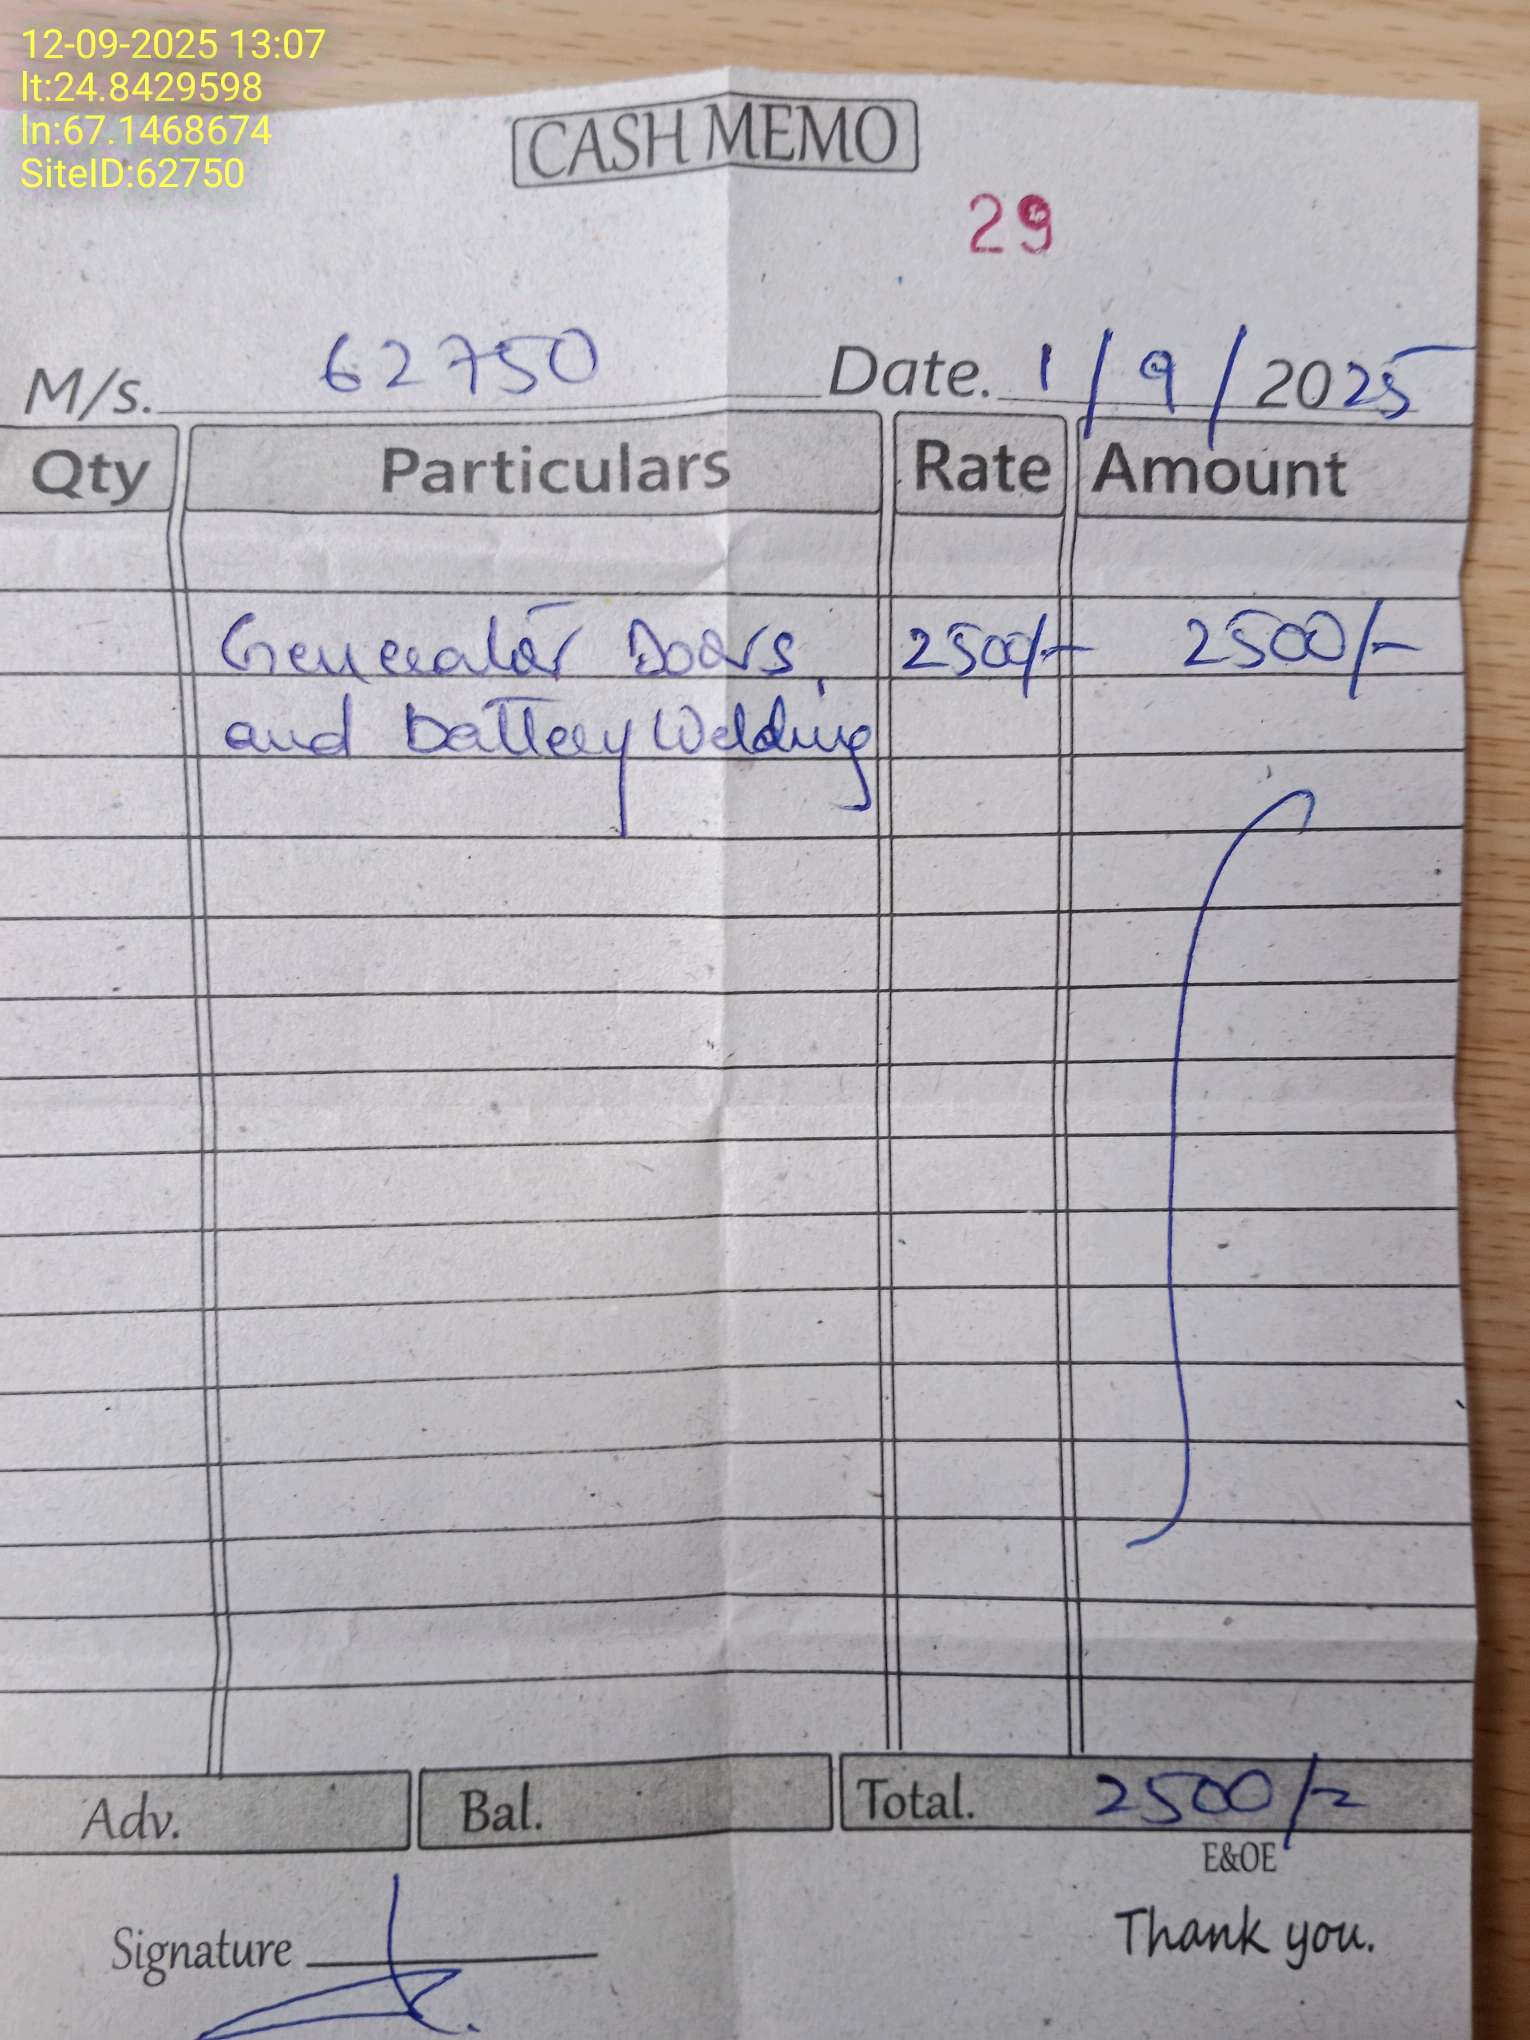 12-09-2025 13:07
lt:24.8429598
ln:67.1468674
SiteID:62750
CASH MEMO
29
M/s. 62750 Date. 1/9/2025
Qty Particulars Rate Amount
Generator Doors, 2500/- 2500/-
and Battery Welding
Adv. Bal. Total. 2500/-
E&OE
Signature
Thank you.